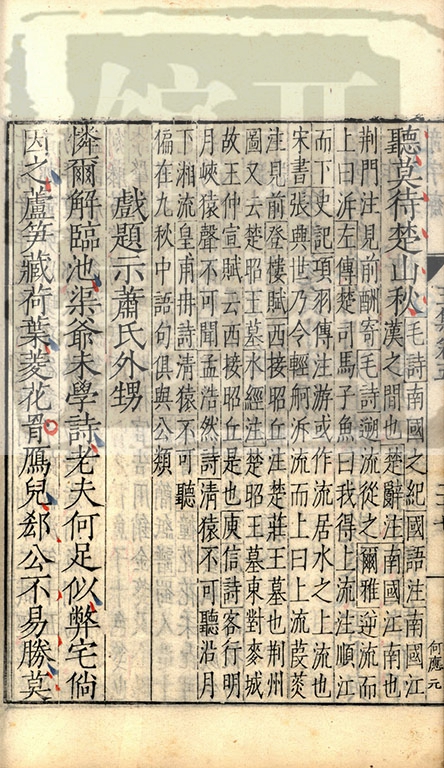 聽莫待楚山秋
毛詩南國之紀國語注南國江
漢之間也楚辭注南國江南也
荆門注見前酬寄毛詩遡流從之爾雅逆流而
上曰泝左傳楚司馬子魚曰我得上流注順江
而下史記項羽傳注游或作流居水之上流也
宋書張興世乃令輕舸泝流而上曰上流葭菼
注見前登樓賦西接昭丘注楚莊王墓也荆州
圖又云楚昭王墓水經注楚昭王墓東對麥城
故王仲宣賦云西接昭丘是也庾信詩客行明
月峽猿聲不可聞孟浩然詩清猿不可聽沿月
下湘流皇甫冉詩清猿不可聽
偏在九秋中語句俱與公類
戲題示蕭氏外甥
憐爾解臨池渠爺未學詩老夫何足似弊宅倘
因之蘆笋藏荷葉菱花罥鴈兒郄公不易勝莫
何應元